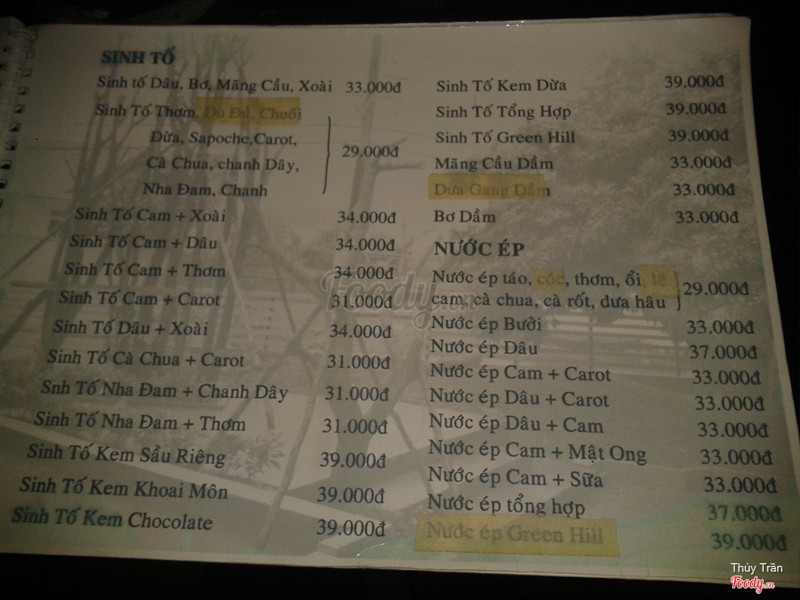 SINH TỐ
Sinh tố Dâu, Bơ, Mãng Cầu, Xoài 33.000đ
Sinh Tố Thơm, Đu Đủ, Chuối
Dừa, Sapoche,Carot,
Cà Chua, chanh Dây, 29.000đ
Nha Đam, Chanh
Sinh Tố Cam + Xoài 34.000đ
Sinh Tố Cam + Dâu 34.000đ
Sinh Tố Cam + Thơm 34.000đ
Sinh Tố Cam + Carot 31.000đ
Sinh Tố Dâu + Xoài 34.000đ
Sinh Tố Cà Chua + Carot 31.000đ
Snh Tố Nha Đam + Chanh Dây 31.000đ
Sinh Tố Nha Đam + Thơm 31.000đ
Sinh Tố Kem Sầu Riêng 39.000đ
Sinh Tố Kem Khoai Môn 39.000đ
Sinh Tố Kem Chocolate 39.000đ
Sinh Tố Kem Dừa 39.000đ
Sinh Tố Tổng Hợp 39.000đ
Sinh Tố Green Hill 39.000đ
Mãng Cầu Dầm 33.000đ
Dưa Gang Dầm 33.000đ
Bơ Dầm 33.000đ
NƯỚC ÉP
Nước ép táo, cóc, thơm, ổi, lê
cam, cà chua, cà rốt, dưa hấu 29.000đ
Nước ép Bưởi 33.000đ
Nước ép Dâu 37.000đ
Nước ép Cam + Carot 33.000đ
Nước ép Dâu + Carot 33.000đ
Nước ép Dâu + Cam 33.000đ
Nước ép Cam + Mật Ong 33.000đ
Nước ép Cam + Sữa 33.000đ
Nước ép tổng hợp 37.000đ
Nước ép Green Hill 39.000đ
Foody.vn
Thủy Trần
Foody.vn